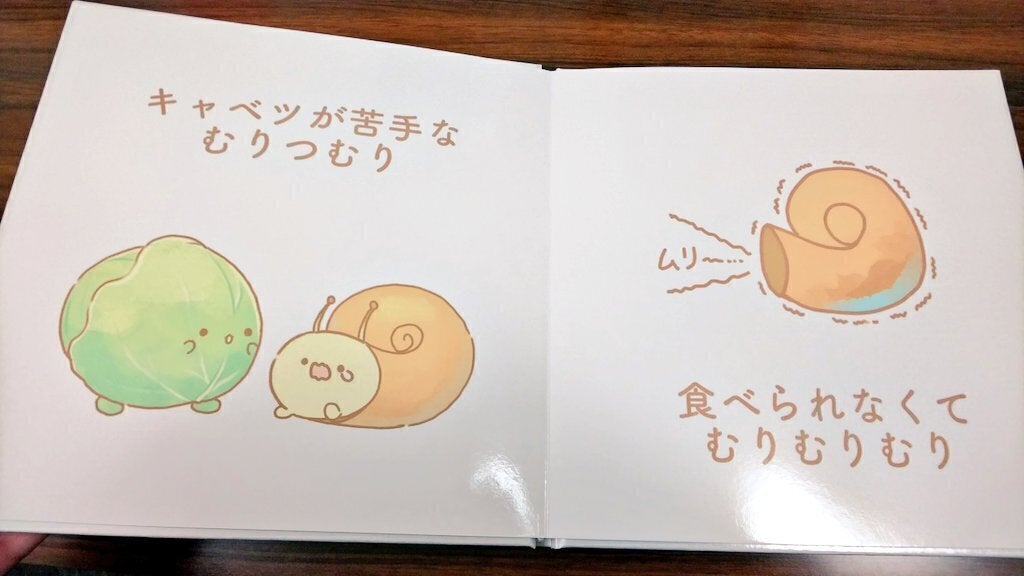 キャベツが苦手な
むりつむり
ムリー…
食べられなくて
むりむりむり